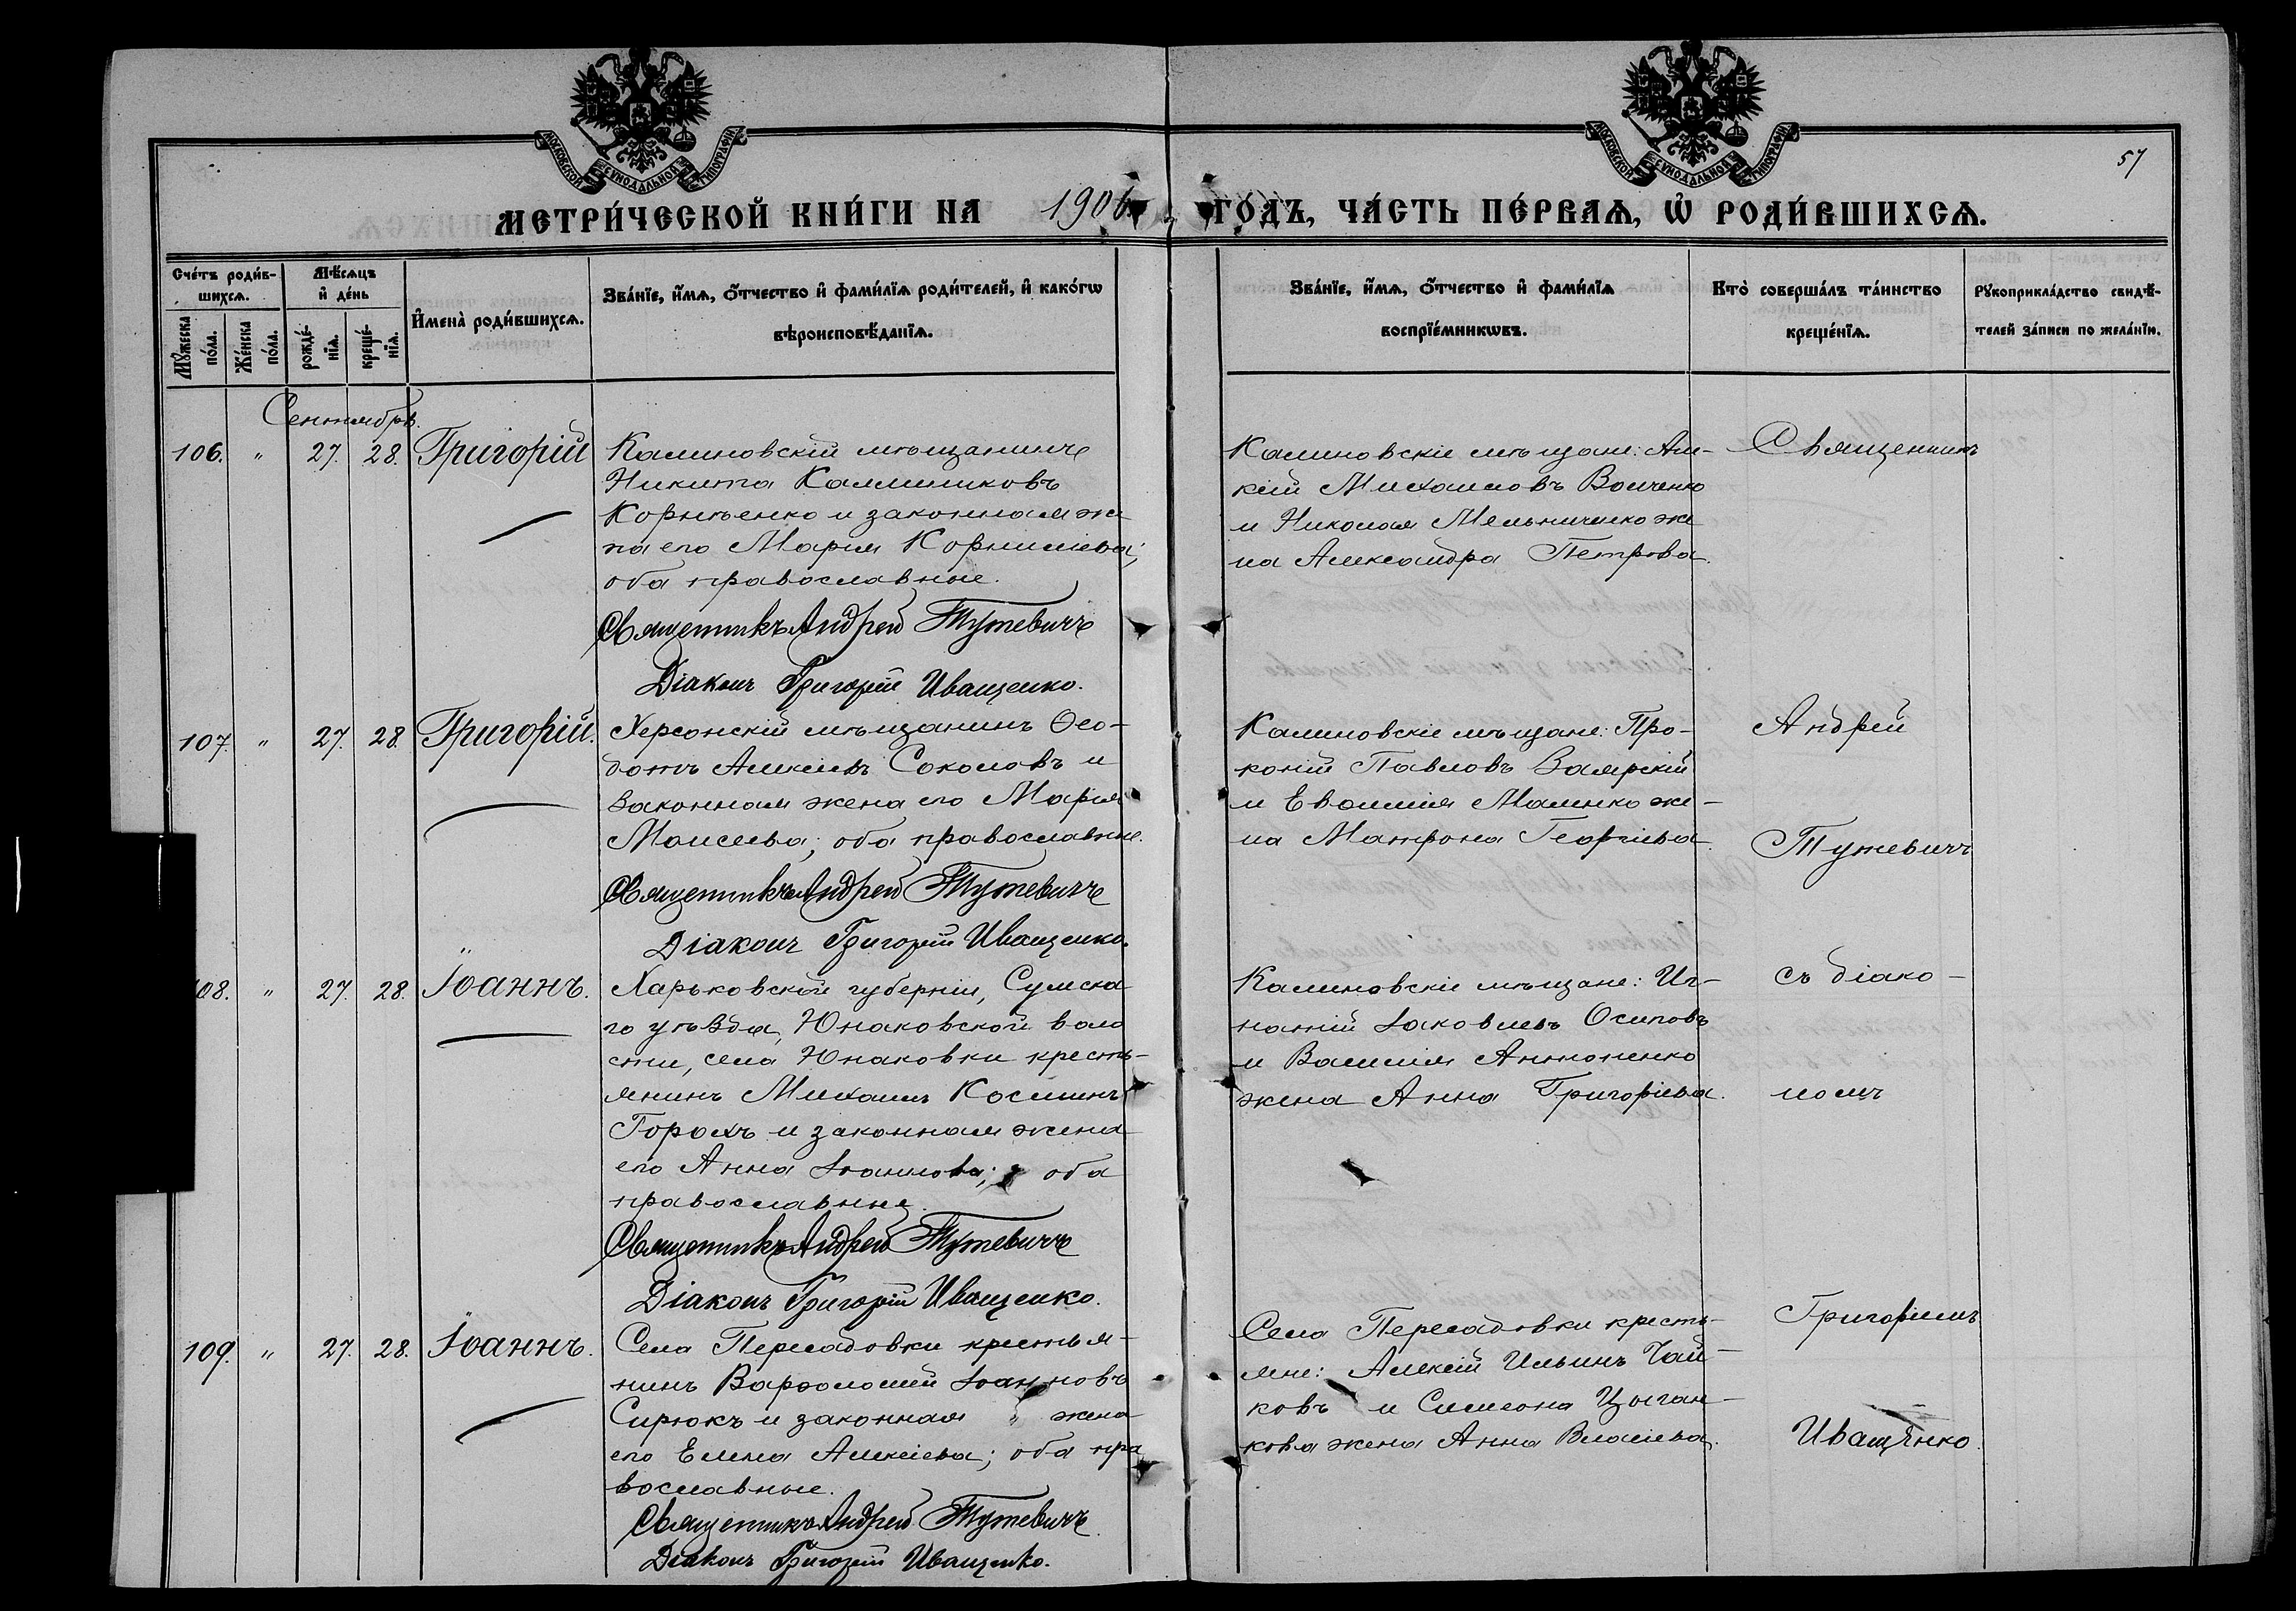 МОСКОВСКОЙ СѴНОДАЛЬНОЙ ТИПОГРАФІИ
МОСКОВСКОЙ СѴНОДАЛЬНОЙ ТИПОГРАФІИ
57
МЕТРИ́ЧЕСКОЙ КНИ́ГИ НА 1906 ГО́ДЪ, ЧА́СТЬ ПЕ́РВАѦ, Ѡ҆ РОДИ́ВШИХСѦ.
Сче́тъ роди́в-
шихсѧ.
Мꙋ́жеска по́ла.
Же́нска по́ла.
Мѣ́сѧцъ и҆ де́нь
рожде́-нїѧ.
креще́-нїѧ.
И҆мена̀ роди́вшихсѧ.
Зва́нїе, и҆́мѧ, о҆́тчество и҆ фами́лїѧ роди́телей, и҆ како́гѡ
вѣроисповѣ́данїѧ.
Зва́нїе, и҆́мѧ, о҆́тчество и҆ фами́лїѧ
воспрїе́мникѡвъ.
Кто̀ соверша́лъ та́инство
креще́нїѧ.
Рꙋкоприкла́дство свидѣ́-
телей за́писи по жела́нїю.
Сентябрь.
106. " 27. 28. Григорій
Калиновскій мѣщанинъ
Никита Каллиниковъ
Корнѣенко и законная же
на его Марія Корниліева;
оба православные.
Священникъ Андрей Тутевичъ
Діаконъ Григорій Иващенко.
Калиновскіе мѣщане:
Михаиловъ Волченко
и Николая Мельниченко же
на Александра Петрова.
Священникъ
107. " 27. 28. Григорій.
Херсонскій мѣщанинъ Ѳео-
дотъ Алексѣевъ Соколовъ и
законная жена его Марія
Моисеева; оба православные.
Священникъ Андрей Тутевичъ
Діаконъ Григорій Иващенко.
Калиновскіе мѣщане: Про-
копій Павловъ
и Маленко же-
на Матрона Георгіева.
Андрей
Тутевичъ
108. " 27. 28. Іоаннъ.
Харьковской губерніи, Сумска
го уѣзда, Юнаковской воло
сти, села Юнаковки кресть-
янинъ Михаилъ Косминъ
Горохъ и законная жена
его Анна Іоаннова; оба
православные.
Священникъ Андрей Тутевичъ
Діаконъ Григорій Иващенко.
Калиновскіе мѣщане: Иг-
натій Іаковлевъ Осиповъ
и Василія Антоненко
жена Анна Григоріева.
съ діако-
номъ
109. " 27. 28. Іоаннъ.
Села Пересадовки крестья-
нинъ Варѳоломей Іоанновъ
Сирюкъ и законная " жена
его Елена Алексіева; оба пра
вославные.
Священникъ Андрей Тутевичъ
Діаконъ Григорій Иващенко.
Села Пересадовки кресть-
яне: Алексій Ильинъ Чай-
ковъ и Симеона Цыган-
кова жена Анна Власіева.
Григоріемъ
Иващенко.